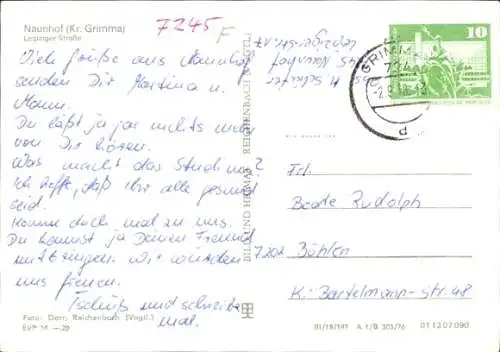 Naunhof (Kr. Grimma)
Leipziger Straße
7245 F
Viele Grüße aus Naunhof
senden Dir Martina u.
Mann.
Du läßt ja gar nichts mehr
von Dir hören.
Was macht das Studium?
Ich hoffe, daß Ihr alle gesund
seid.
Komme doch mal zu uns.
Du kannst ja Deinen Freund
mitbringen. Wir würden
uns freuen.
Tschüß und schreibe
mal.
Foto: Darr, Reichenbach (Vogtl.)
EVP M —,20
BILD UND HEIMAT REICHENBACH (VOGTL)
7245 Naunhof
Leipziger Str.
GRIMMA
10
Frl.
Beate Rudolph
7202 Böhlen
K.-Bartelmann-Str. 48
III/18/197 A 1/B 305/76 01 13 07 090